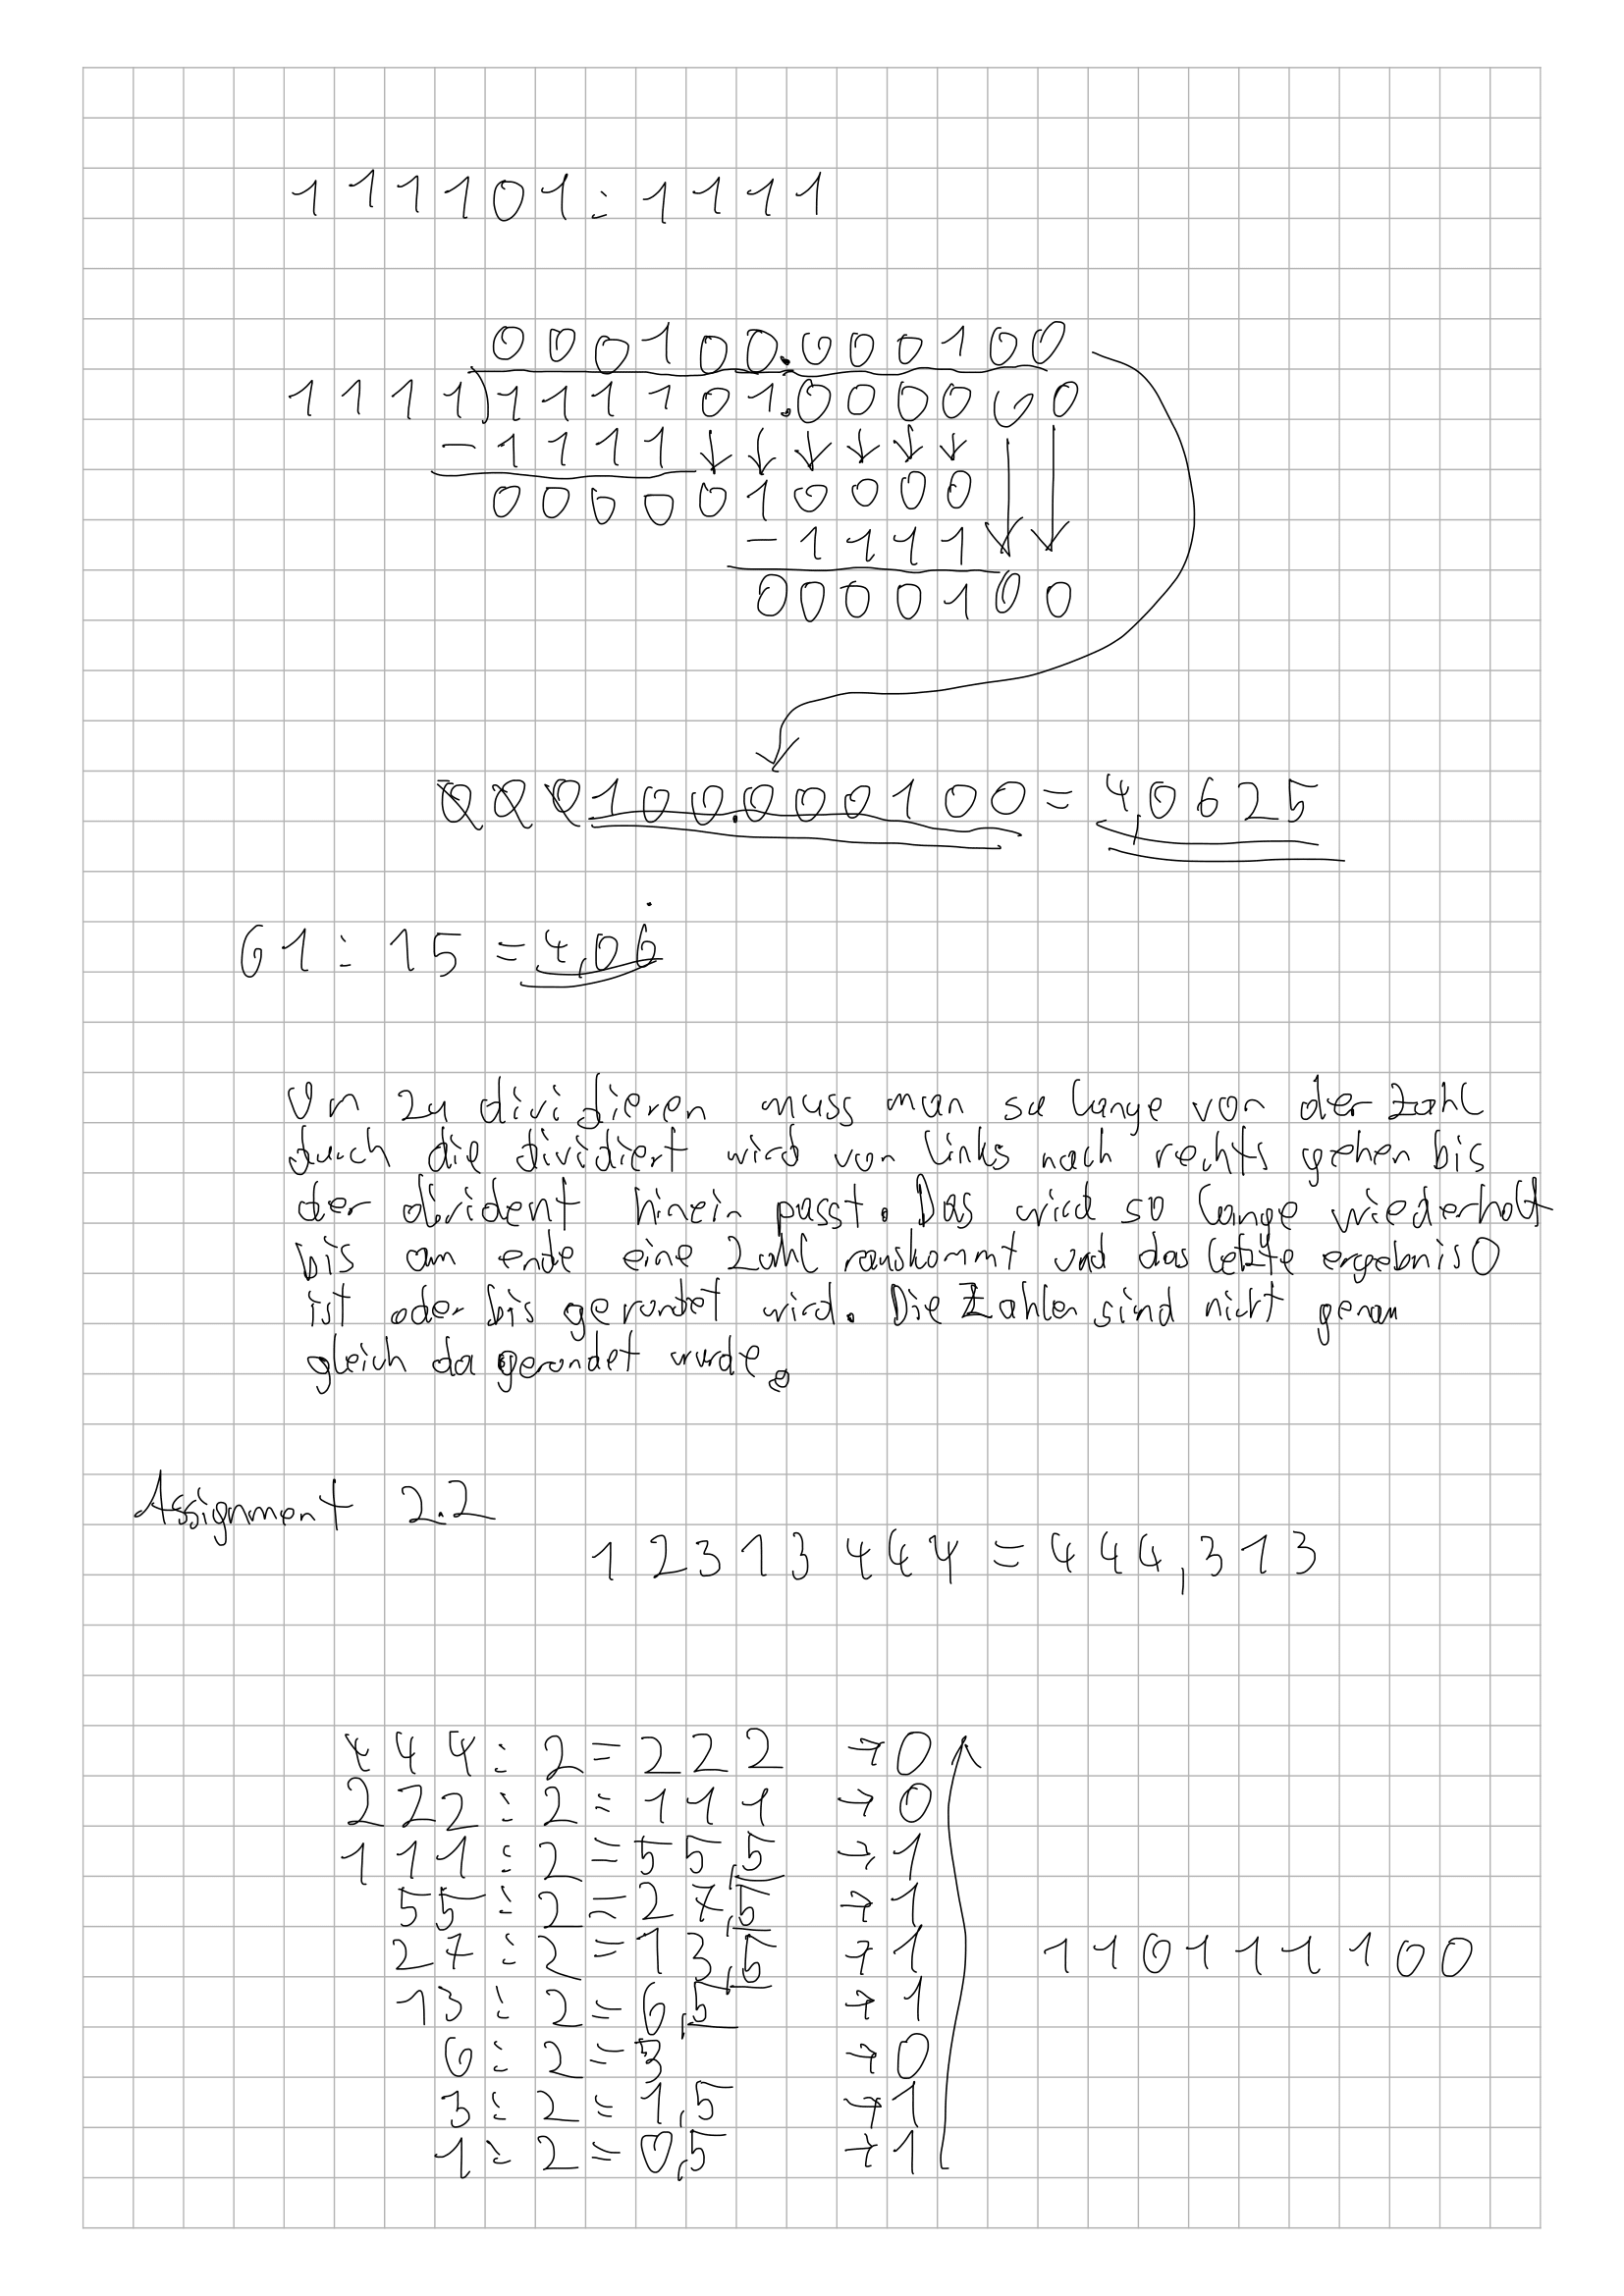 111101:1111
000100.000100
1111)111101.000000
-1111
0000010000
-1111
0000100
000100.000100=4,0625
61:15=4,06̇
Un zu dividieren muss man so lange von der zahl
durch die dividiert wird von links nach rechts gehen bis
der divident hinein passt. Das wird so lange wiederholt
bis am ende eine Zahl rauskommt und das letzte ergebnis 0
ist oder bis gerundet wird. Die Zahlen sind nicht genau
gleich da gerundet wurde.
Assignment 2.2
12313444=444,313
444:2=222 →0
222:2=111 →0
111:2=55,5 →1
55:2=27,5 →1
27:2=13,5 →1
110111100
13:2=6,5 →1
6:2=3 →0
3:2=1,5 →1
1:2=0,5 →1